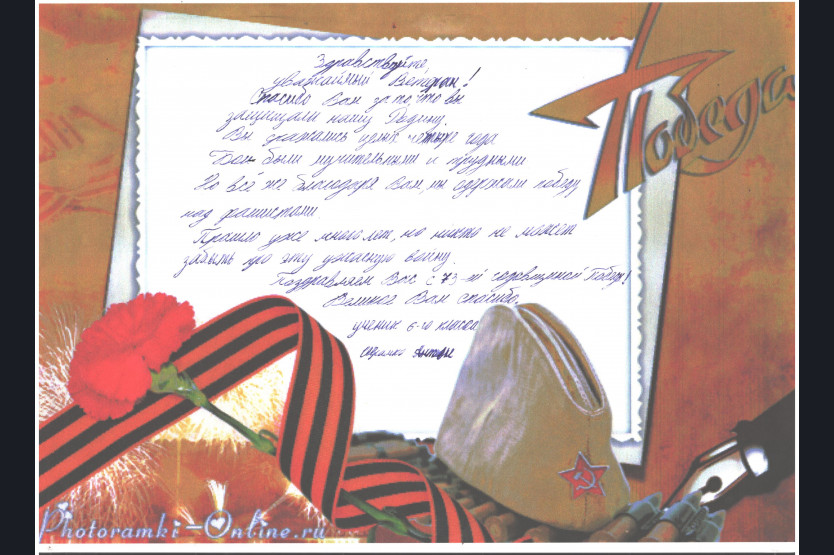 Здравствуйте,
уважаемый Ветеран!
Спасибо Вам за то, что вы
защищали нашу Родину.
Вы сражались целых четыре года
Бои были мучительными и трудными
Но всё же благодаря Вам, мы одержали победу
над фашистами
Прошло уже много лет, но никто не может
забыть про эту ужасную войну.
Поздравляем Вас с 73-ей годовщиной Победы!
Великое Вам спасибо.
ученик 6-го класса
Победа
Photoramki-Online.ru